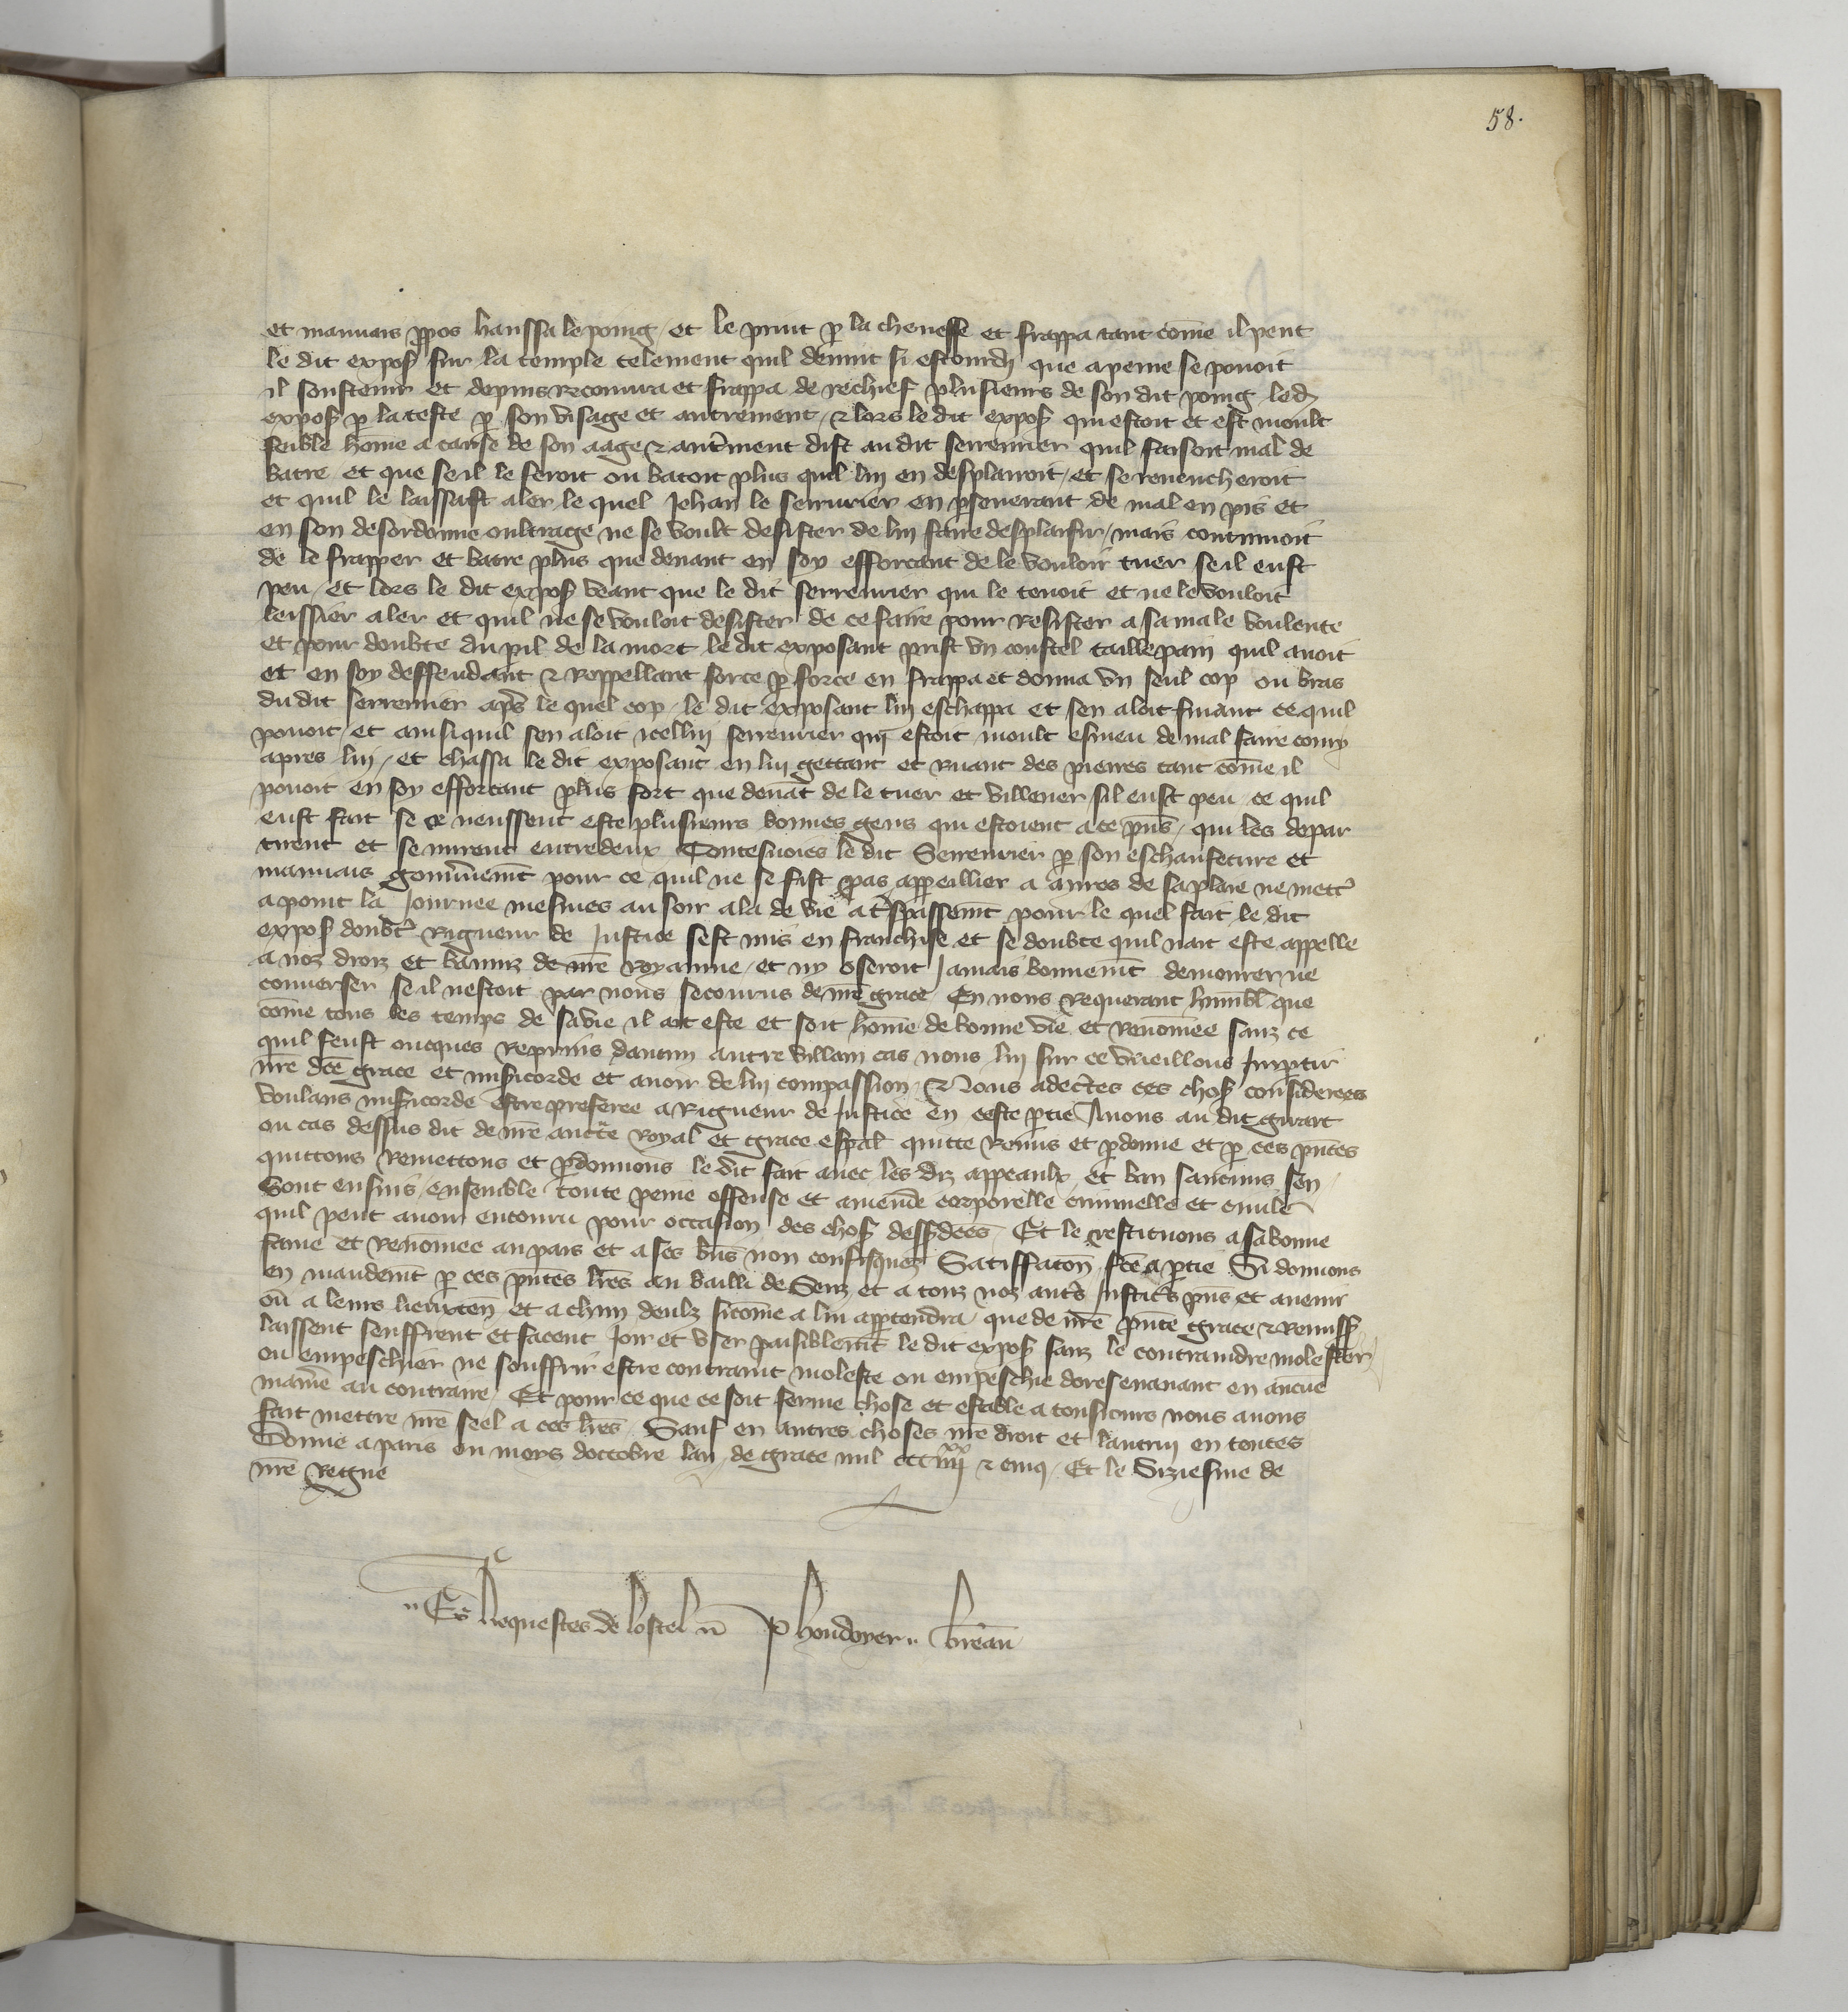 58.
et mauvais ppos haussa le poing et le print p la chevesse et frappa tant come il peut
le dit expos sur la temple telement quil devint si estourdi que a peine se povoit
il soustenir et depuis recouvra et frappa de rechief plusieurs de son dit poing led
expos p la teste p son visage et autrement & lors le dit expos qui estoit et est moult
feible home a cause de son aage & autment dist au dit serreurier quil faisoit mal de
batre et que se il le feroit ou batoit plus quil lui en desplairoit et se revencheroit
et quil le laissast aler le quel Jehan le serrurier en pseverant de mal en pis et
en son desordonne oultrage ne se voult desister de lui faire desplaisir mais continuoit
de le frapper et batre plus que devant en soy efforcant de le vouloir tuer se il eust
peu et lors le dit expos veant que le dit serreurier qui le tenoit et ne le vouloit
leissier aler et quil ne se vouloit desister de ce faire pour resister a sa male voulente
et pour doubte du pil de la mort le dit exposant prist un coustel taillepain quil avoit
et en soy deffendant & reppellant force p force en frappa et donna un seul cop ou bras
du dit serreurier aps le quel cop le dit exposant lui eschappa et sen aloit fuiant ce quil
povoit et ainsi quil sen aloit icellui serreurier qui estoit moult esmeu de mal faire couru
apres lui et chassa le dit exposant en lui gettant et ruant des pierres tant come il
povoit en soy efforcant plus fort que devat de le tuer et villener sil eust peu ce quil
eust fait se ce neussent este plusieurs bonnes gens qui estoient a ce pns qui les depar
tirent et se mirent entredeux Toutesvoies le dit Serreurier p son eschaufeture et
mauvais gouvnemt pour ce quil ne se fist pas appeillier a aures de sa plaie ne mett
a point la Journee mesmes au soir ala de vie a tspassemt pour le quel fait le dit
expos doubt rigueur de Justice sest mis en franchise et se doubte quil nait este appelle
a noz droiz et banniz de nre royaume et ny oseroit Jamais bonnemt demourer ne
converser se il nestoit par nous secourus de nre grace En nous requerant humbl que
come tous les temps de sa vie il ait este et soit home de bonne vie et renomee sanz ce
quil feust oncques reprins daucun autre villain cas nous lui sur ce vueillons Impartir
nre dce grace et misicorde et avoir de lui compassion & Nous adectes ces chos considerees
voulans misicorde estre preferee a Rigueur de Justice en ceste ptie Avons au dit girart
ou cas dessus dit de nre aucte Royal et grace espal quitte remis et pdonne et p ces pntes
quittons remettons et pdonnons le dit fait avec les diz appeaulx et ban saucuns sen
sont ensuis ensemble toute peine offense et amende corporelle criminelle et civile
quil peut avoir encouru pour occasion des chos dessdces Et le restituons a sa bonne
fame et renomee au pais et a ses bns non confisquez Satiffacon fce a ptie Si donnons
en mandemt p ces pntes lres au bailli de Senz et a touz noz auts Justics pns et avenir
ou a leurs lieuxten et a chun deulz sicome a lui apptendra que de nre pnte grace & remiss
laissent seuffrent et facent Joir et user paisiblemt le dit expos sanz le contraindre molester
ou empeschier ne souffrir estre contraint moleste ou empeschie doresenavant en aucue
maniere au contraire Et pour ce que ce soit ferme chose et estable a tousiours nous avons
fait mettre nre seel a ces lres Sauf en autres choses nre droit et lautrui en toutes
Donne a paris ou moys doctobre lan de grace mil ccc iiii xx & cinq Et le Siziesme de
nre Regne
Es Requestes de lostel P houdoyer breau